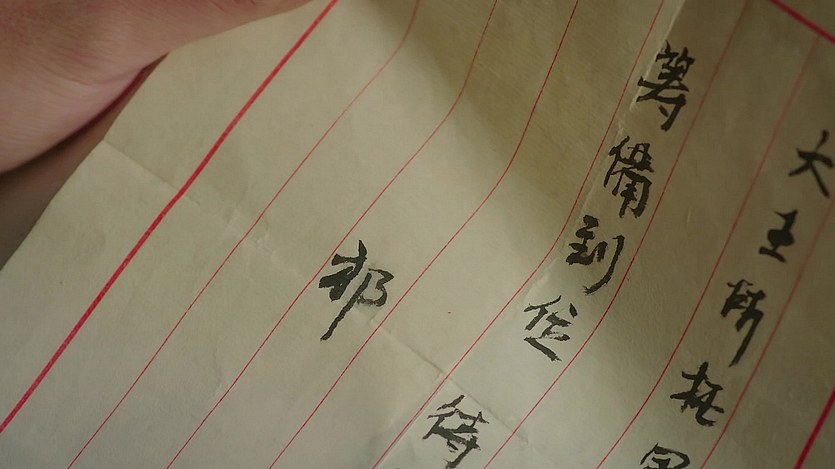 大王所托
筹備到位待